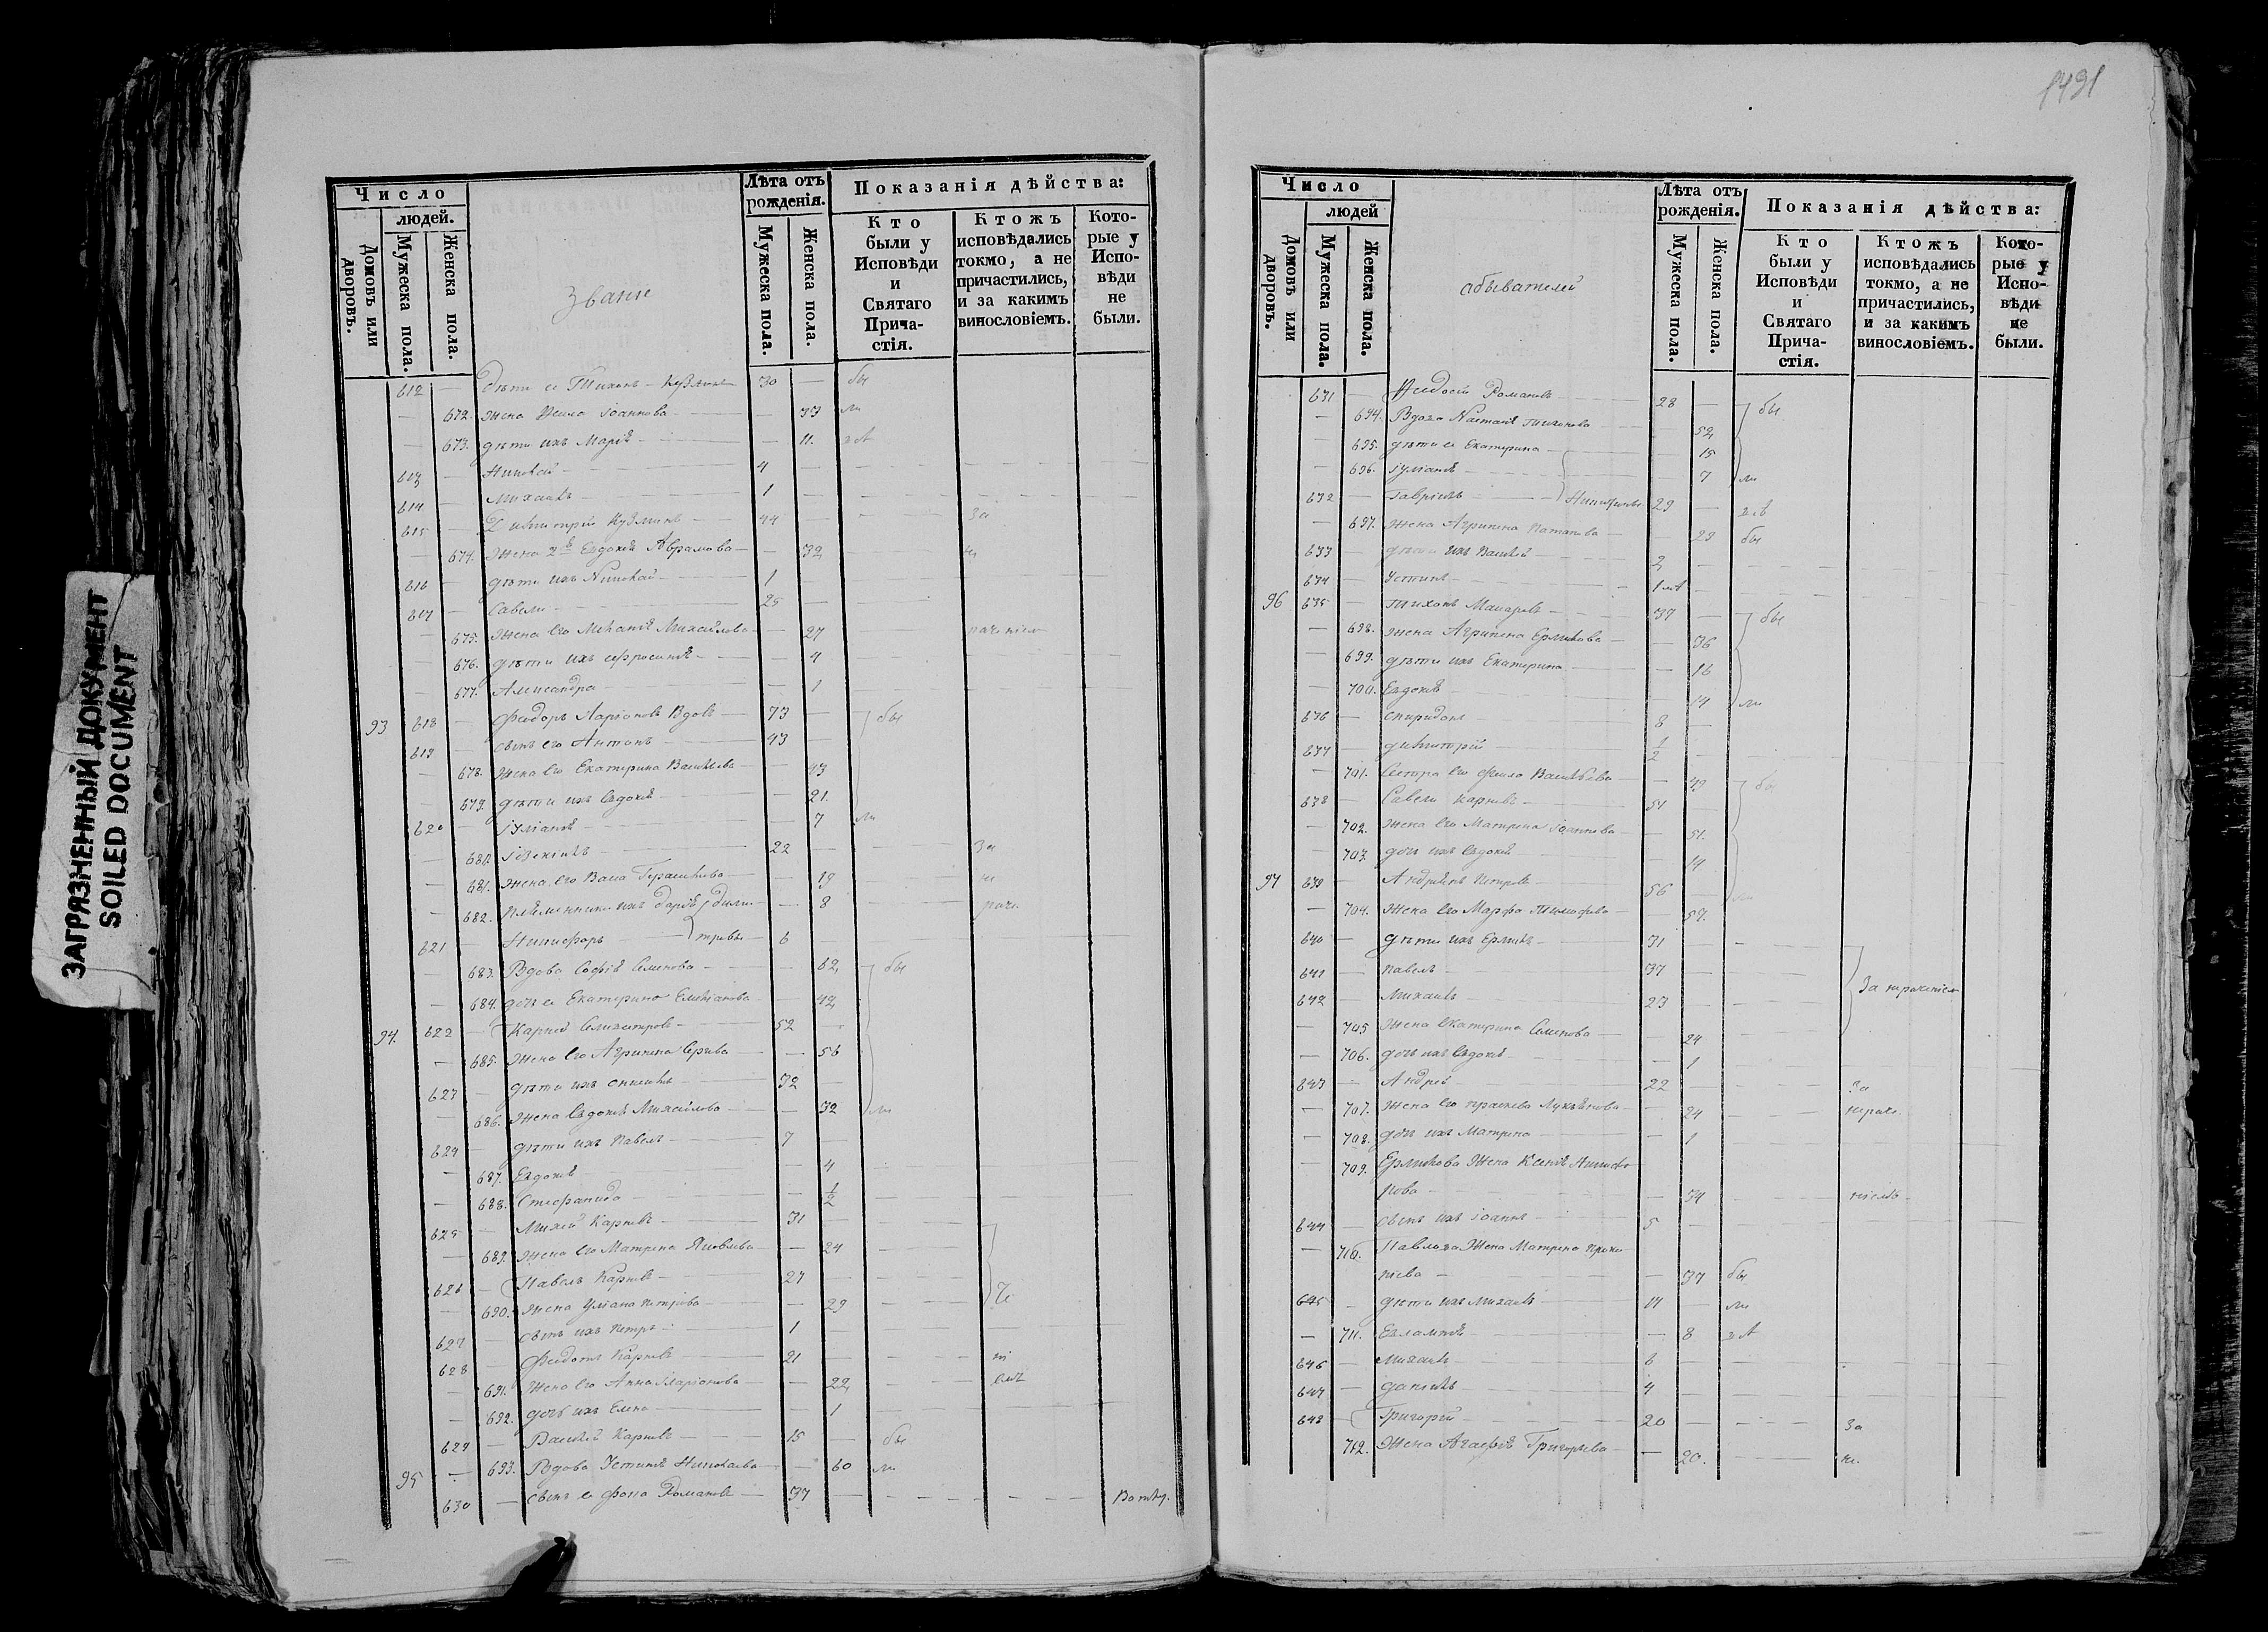 ЗАГРЯЗНЕННЫЙ ДОКУМЕНТ
SOILED DOCUMENT
Число
людей.
Домовъ или дворовъ.
Мужеска пола.
Женска пола.
Званіе
Лѣта отъ рожденія.
Мужеска пола.
Женска пола.
Показанія дѣйства:
Кто были у Исповѣди и Святаго Прича-стія.
Ктожъ исповѣдались токмо, а не причастились, и за какимъ винословіемъ.
Кото-рые у Испо-вѣди не были.
612 — дѣти ея Тихонъ Кузминъ 30 — бы
— 672. Жена Іоаннова — 33 ли
— 673. дѣти ихъ Маріѣ — 11.
613 — Николай 4
614 — Михаилъ 1
615 — Димитрій Кузминъ 44 — за
— 674. Жена 2я Евдокіѣ Аврамова — 32
616 — дѣти ихъ Николай 1
617 — Савели 25
— 675. Жена его Меланіѣ Михайлова — 27
— 676. дѣти ихъ Ефросиніѣ — 4
— 677. Александра — 1
93 618 — Феодоръ Ларіоновъ Вдовъ 73 — бы
619 — сынъ его Антонъ 43
— 678. Жена его Екатерина Васильева — 43
— 679. дѣти ихъ Евдокіѣ — 21.
620 — Іуліаніѣ — 7 ли
— 680. Іезекіиль 22 — за
— 681. Жена его Васа Герасимова — 19 не
— 682. племянники ихъ Даріѣ — 8
621 — Никифоръ 6
— 683. Вдова Софіѣ Семенова — 62 бы
— 684. дочь ея Екатерина Емельянова — 42
94. 622 — Карпъ Селиверстровъ 52
— 685. Жена его Агрипена Сергѣва — 56
623 — дѣти ихъ 32
— 686. Жена Евдокіѣ Михайлова — 32 ли
624 — дѣти ихъ Павелъ 7
— 687. Евдокіѣ — 4
— 688. Стефанида — 1/2
625 — Михей Карповъ 31
— 689. Жена его Матрена Яковлева — 24
626 — Павелъ Карповъ 27
— 690. Жена Уліана Петрова — 29
627 — сынъ ихъ Петръ 1
628 — Федотъ Карповъ 21
— 691. Жена его Анна Ларіонова — 22
— 692. дочь ихъ Елена — 1
629 — Василей Карповъ 15 — бы
95 — 693. Вдова Устиніѣ Николаева — 60 ли
630 — сынъ ея Фома Романовъ 37
1491
Число
людей
Домовъ или дворовъ.
Мужеска пола.
Женска пола.
обывателей
Лѣта отъ рожденія.
Мужеска пола.
Женска пола.
Показанія дѣйства:
Кто были у Исповѣди и Святаго Прича-стія.
Ктожъ исповѣдались токмо, а не причастились, и за какимъ винословіемъ.
Кото-рые у Испо-вѣди не были.
631 — Федосій Романовъ 28 — бы
— 694. Вдова Наталіѣ Тихонова — 52
— 695. дѣти ея Екатерина — 15
— 696. Іуліаніѣ — 7 ли
632 — Гавріилъ Никифоровы 29
— 697. Жена Агрипена Потапова — 29 бы
633 — дѣти ихъ Василей 2
634 — Устинъ
96 635 — Тихонъ Макаровъ 37 — бы
— 698. Жена Агрипена Ермилова — 36
— 699. дѣти ихъ Екатерина — 16
— 700. Евдокіѣ — 14 ли
636 — Спиридонъ 8
637 — Димитрій 1/2
— 701. Сестра его Фекла Васильева — 49 бы
638 — Савели Карповъ 51
— 702. Жена его Матрена Іоаннова — 51.
— 703. дочь ихъ Евдокіѣ — 14
97 639 — Андріянъ Петровъ 56
— 704. Жена его Марфа Тимофева — 57.
640 — дѣти ихъ Ермилъ 31
641 — Павелъ 37
642 — Михаилъ 23
— 705 Жена Екатерина Семенова — 24
— 706. дочь ихъ Евдокіѣ — 1
643 — Андрей 22 — за
— 707. Жена его Прасковя Лукьянова — 24
— 708. дочь ихъ Матрена — 1
— 709. Ермилова Жена Ксеніѣ Никифо
рова — 34
644 — сынъ ихъ Іоаннъ 5
— 710. Павлова Жена Матрена Проко
піева — 37 бы
645 — дѣти ихъ Михаилъ 11 — ли
— 711. Евлампіѣ — 8
646 — Михаилъ 6
647 — Даніилъ 4
648 — Григорій 20 — за
712. Жена Агафіѣ Григорьева — 20. не.